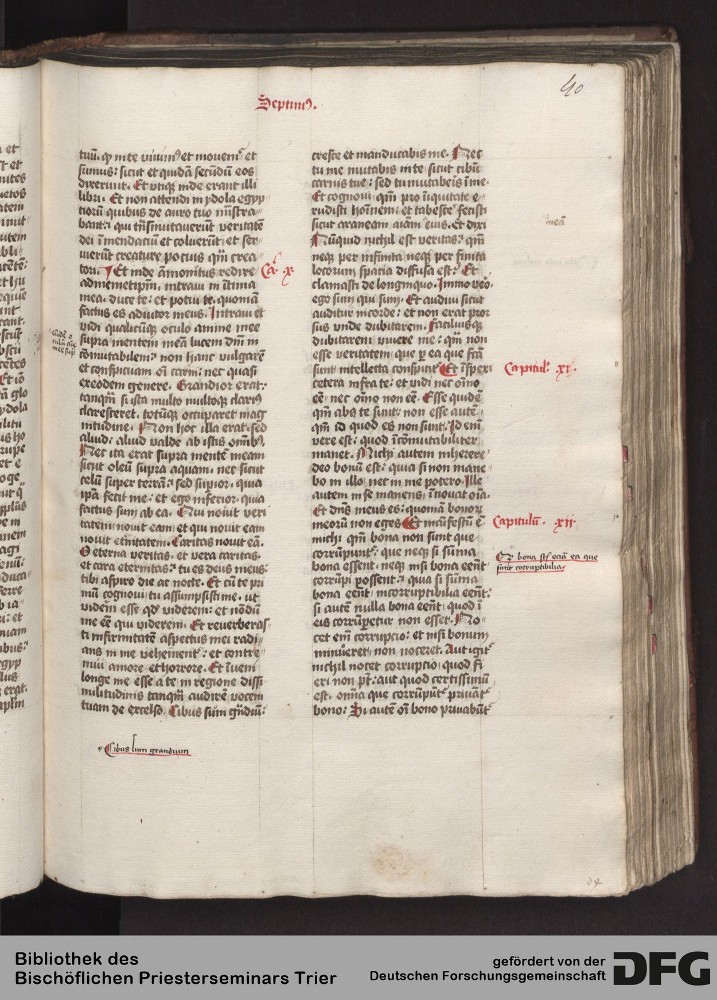 Septimus.
40
tuū. qꝫ in te viuimꝰ et mouemꝰ et
sumus: sicut et quidā secūdū eos
dixerunt. Et vtiqꝫ inde erant illi
libri. Et non attendi in ydola egyp
tiorū quibus de auro tuo mīstra
bant: qui trāsmutauerūt veritatē
dei ī mendaciū et coluerūt et ser
uierūt creature pocius qm̄ crea
tori. Et inde āmonitus redire
ad memetipm̄. intraui in ītima
mea. duce te: et potui te. quoniā
factus es adiutor meus. Intraui et
vidi qualicūqꝫ oculo anime mee
supra mentem meā lucem dn̄i in
cōmutabilem: non hanc vulgarē
et conspicuam oī carni: nec quasi
ex eodem genere. Grandior erat:
tanqm̄ si ista multo multoqꝫ clariꝰ
claresceret. totūqꝫ occuparet mag
nitudine. Non hoc illa erat. sed
aliud: aliud valde ab istis om̄ibꝰ
Nec ita erat supra mentē meam
sicut oleū supra aquam. nec sicut
celū super terrā: sed supior. quia
ipā fecit me: et ego inferior. quia
factus sum ab ea. Qui nouit veri
tatem nouit eam: et qui nouit eam
nouit et̄nitatem. Caritas nouit eā.
O eterna veritas. et vera caritas.
et cara eternitas: tu es deus meus:
tibi aspiro die ac nocte. Et cū te pri
mū cognoui tu assumpsisti me. ut
viderem esse qd viderem: et nōdū
me eē qui viderem. Et reuerberas
ti infirmitatē aspectus mei radi
ans in me vehementꝰ: et contre
mui amore et horrore. Et īueni
longe me esse a te in regione dissi
militudinis tanqm̄ audirē vocem
tuam de excelso. Cibus sum gn̄diū:
Cibus sum grandium
Ca. x
creste et manducabis me. Nec
tu me mutabis in te sicut cibū
carnis tue: sed tu mutaberis ī me.
Et cognoui qm̄ pro īiquitate e
rudisti hoīnem: et tabesce fecisti
sicut araneam aīam eius. Et dixi
Nūquid nichil est veritas: qm̄
neqꝫ per infinita neqꝫ per finita
locorum spacia diffusa est: Et
clamasti de longinquo. Immo vēo
ego sum qui sum. Et audiui sicut
auditur in corde: et non erat pror
sus vnde dubitarem. faciliusqꝫ
dubitarem viuere me: qm̄ non
esse veritatem que p ea que fcā
sunt intellecta conspicit̄. Et īspexi
cetera infra te: et vidi nec oīno
eē. nec oīno non eē. Esse quidē
qm̄ abs te sunt: non esse autē.
qm̄ id quod es non sunt. Id enī
vere est: quod īcōmutabiliter
manet. Michi autem inherere
deo bonū est: quia si non mane
bo in illo. nec in me potero. Ille
autem in se manens: īnouat oīa.
Et dn̄s meus es: quoniā bonorū
meorū non eges. Et māifestū ē
michi qm̄ bona non sunt que
corrūpunt̄: que neqꝫ si sūma
bona essent. neqꝫ nisi bona eēnt
corrūpi possent: quia si sūma
bona eēnt. incorruptibilia eēnt:
si autē nulla bona eēnt: quod ī
eis corrūperetur non esset. No
cet em̄ corrupcio: et nisi bonum
minueret. non noceret. Aut igit̄
nichil nocet corrupcio. quod fi
eri non pt̄: aut quod certissimū
est. omīa que corrūpūt̄ priuāt̄
bono: Si autē oī bono priuabūt̄
meā
Capitulū. xi.
Capitulū. xii.
Qꝫ bona sūt eciā ea que
sunt corruptibilia
Bibliothek des
Bischöflichen Priesterseminars Trier
gefördert von der
Deutschen Forschungsgemeinschaft
DFG